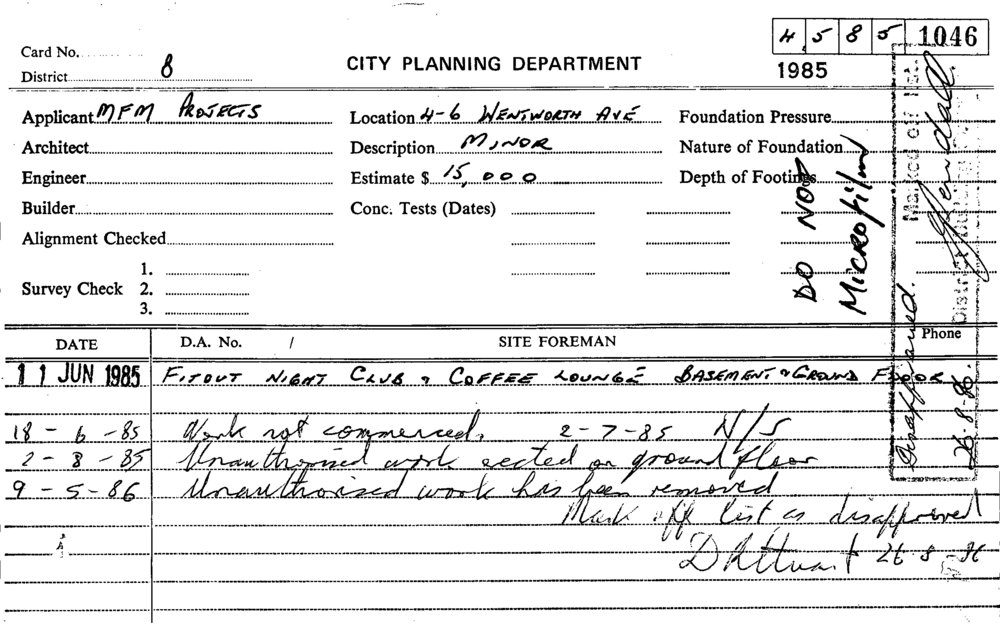 4585 1046
Card No.
District 8
CITY PLANNING DEPARTMENT
1985
Applicant MFM PROJECTS
Location 4-6 WENTWORTH AVE
Foundation Pressure
Architect
Description MINOR
Nature of Foundation
Engineer
Estimate $ 15,000
Depth of Footings
Builder
Conc. Tests (Dates)
Alignment Checked
Survey Check
1.
2.
3.
DO NOT
MICROFILM
Marked off
Disapproved.
District
26-8-86.
DATE
D.A. No. /
SITE FOREMAN
Phone
11 JUN 1985 FITOUT NIGHT CLUB & COFFEE LOUNGE BASEMENT & GROUND FLOOR
18-6-85 Work not commenced. 2-7-85 N/S
2-8-85 Unauthorised work erected on ground floor
9-5-86 Unauthorised work has been removed
Mark off list as disapproved
26-8-86